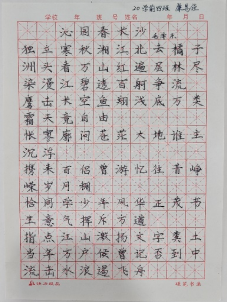 20学前四班
学校 年 班 号 姓名 年 月 日
沁园春长沙
毛泽东
独立寒秋湘江北去橘子
洲头看万山红遍层林尽
染漫江碧透百舸争流
鹰击长空鱼翔浅底万类
霜天竞自由
怅寥廓问苍茫大地谁主
沉浮
携来百侣曾游忆往昔峥
嵘岁月稠
恰同学少年风华正茂书
生意气挥斥方遒
指点江山激扬文字粪土
当年万户侯曾记否到中
流击水浪遏飞舟